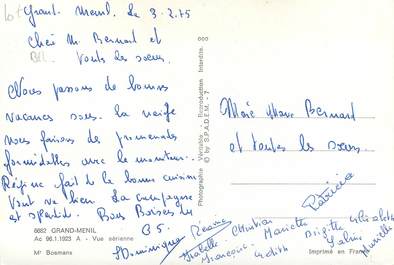 Grant. Menil. Le 3.2.75
Chéé M. Bernard et
toute les soeurs.
Nous passons de bonnes
vacances sous la neige
nous faisons des promenades
formidables avec le moniteur.
Régine fait de la bonne cuisine
Tout va bien. La campagne
est splendide. Bons Baisers du
Dominique
Régine
Isabelle
Christian
Mariette
Brigitte
Edith
Sabine
Murielle
Françoise
Patricia
6682 GRAND-MENIL
Ac 96.1.1923 A - Vue aérienne
Mr Bosmans
Photographie Véritable - Reproduction Interdite.
© by S.P.A.D.E.M. - 7
000
Bernard
et toutes les soeurs
Imprimé en France